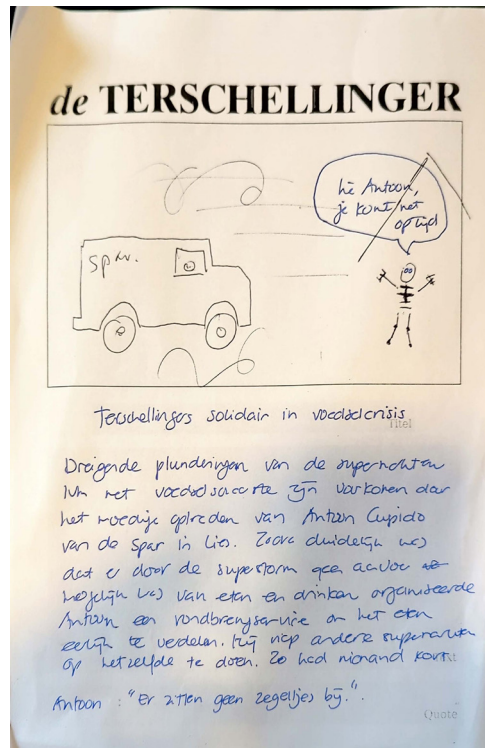 de TERSCHELLINGER
hè Antoon,
je komt net
op tijd
Spar.
Terschellingers solidair in voedselcrisis
Titel
Dreigende plunderingen van de supermarkten
ivm het voedseltekorte zijn voorkomen door
het moedige optreden van Antoon Cupido
van de Spar in Lies. Zodra duidelijk was
dat er door de superstorm geen aanvoer
mogelijk was van eten en drinken organiseerde
Antoon een rondbrengservice om het eten
eerlijk te verdelen. Hij riep andere supermarkten
op hetzelfde te doen. Zo had niemand kort.
Antoon : "Er zitten geen zegeltjes bij.".
Quote